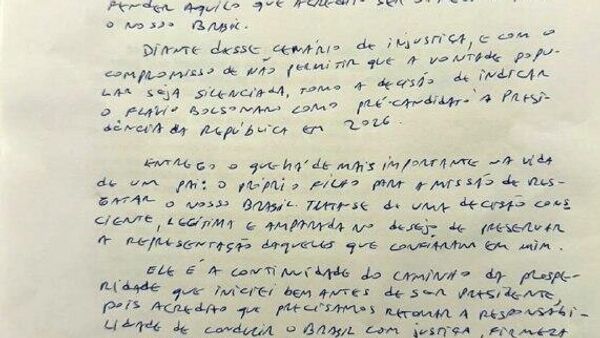 FENDER AQUILO QUE ACREDITO SER
O NOSSO BRASIL.
DIANTE DESSE CENÁRIO DE INJUSTIÇA, E COM O
COMPROMISSO DE NÃO PERMITIR QUE A VONTADE POPU-
LAR SEJA SILENCIADA, TOMO A DECISÃO DE INDICAR
O FLÁVIO BOLSONARO COMO PRÉ-CANDIDATO À PRESI-
DÊNCIA DA REPÚBLICA EM 2026.
ENTREGO O QUE HÁ DE MAIS IMPORTANTE NA VIDA
DE UM PAI: O PRÓPRIO FILHO PARA A MISSÃO DE RES-
GATAR O NOSSO BRASIL. TRATA-SE DE UMA DECISÃO CONS-
CIENTE, LEGÍTIMA E AMPARADA NO DESEJO DE PRESERVAR
A REPRESENTAÇÃO DAQUELES QUE CONFIARAM EM MIM.
ELE É A CONTINUIDADE DO CAMINHO DA PROSPE-
RIDADE QUE INICIEI BEM ANTES DE SER PRESIDENTE,
POIS ACREDITO QUE PRECISAMOS RETOMAR A RESPONSABI-
LIDADE DE CONDUZIR O BRASIL COM JUSTIÇA, FIRMEZA